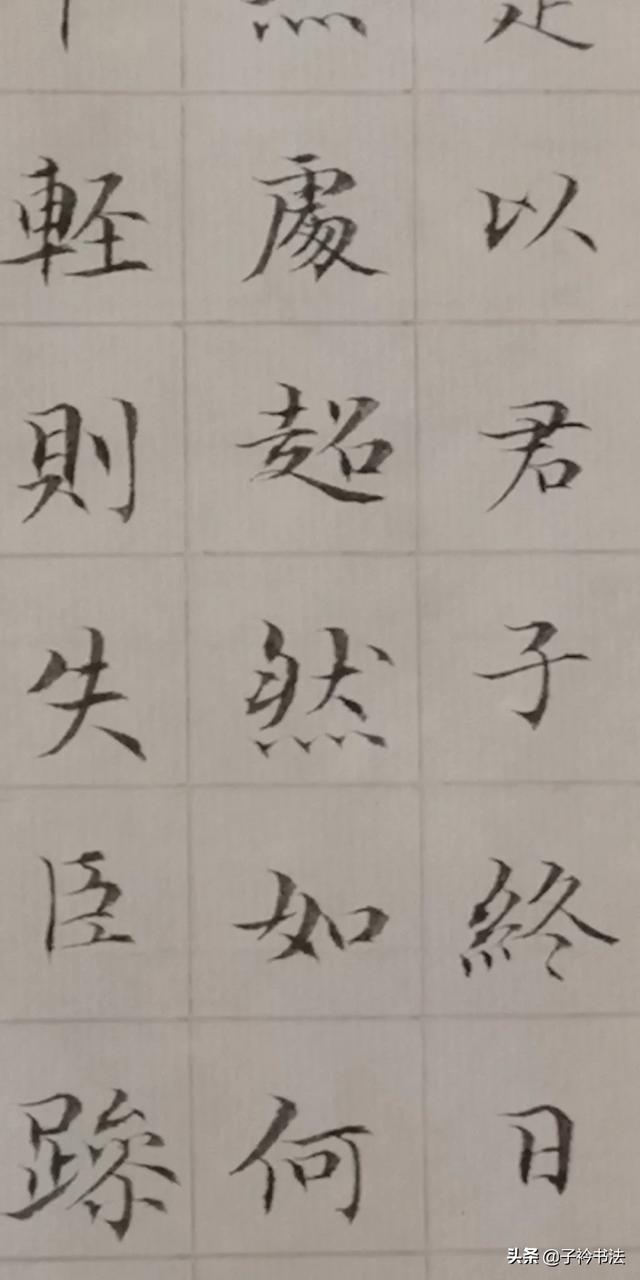 以君子終日
處超然如何
軽則失臣躁
头条 @子衿书法